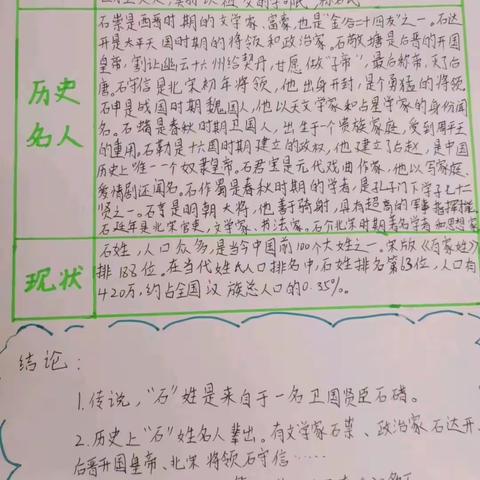 石崇是西晋时期的文学家、富豪,也是"金谷二十四友"之一。石达
开是太平天国时期的将领和政治家。石敬塘是后晋的开国
皇帝,割让幽云十六州给契丹,甘愿做"子帝",最后称帝,灭了后
唐。石守信是北宋初年将领,他出身开封,是个勇猛的将领。
石申是战国时期魏国人,他以天文学家和占星学家的身份闻
名。石碏是春秋时期卫国人,出生于一个贵族家庭,受到周平王
的重用。石勒是十六国时期建立的政权,他建立了后赵,是中国
历史上唯一一个奴隶皇帝。石君宝是元代戏曲作家,他以写家庭、
爱情剧还闻名。石作蜀是春秋时期的学者,是孔子门下学子七十二
贤之一。石亨是明朝大将,他善于骑射,具有超高的军事指挥
石延年是北宋官吏、文学家、书法家。石介北宋时期著名学者和思想家
历史
名人
石姓,人口众多,是当今中国前100个大姓之一。宋版《百家姓》
排188位。在当代姓氏人口排名中,石姓排名第63位,人口有
420万,约占全国汉族总人口的0.35%。
现状
结论:
1.传说,"石"姓是来自于一名卫国贤臣石碏。
2.历史上"石"姓名人辈出。有文学家石崇、政治家石达开、
后晋开国皇帝、北宋将领石守信……